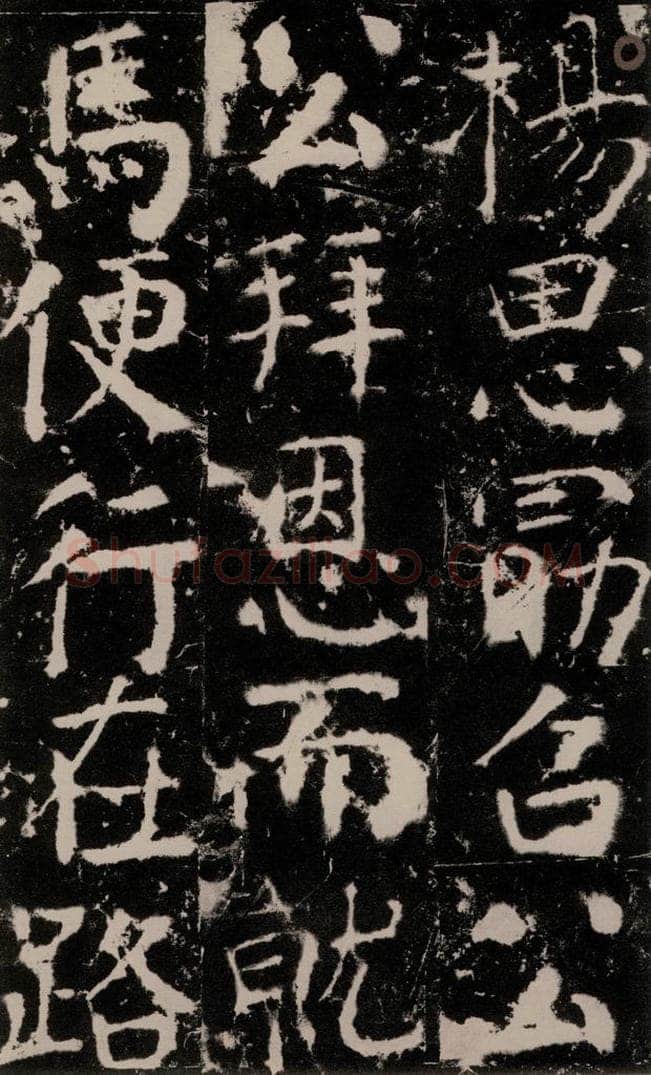 楊思勖召公
公拜恩而就
馬便行在路
Shufaziliao.COM